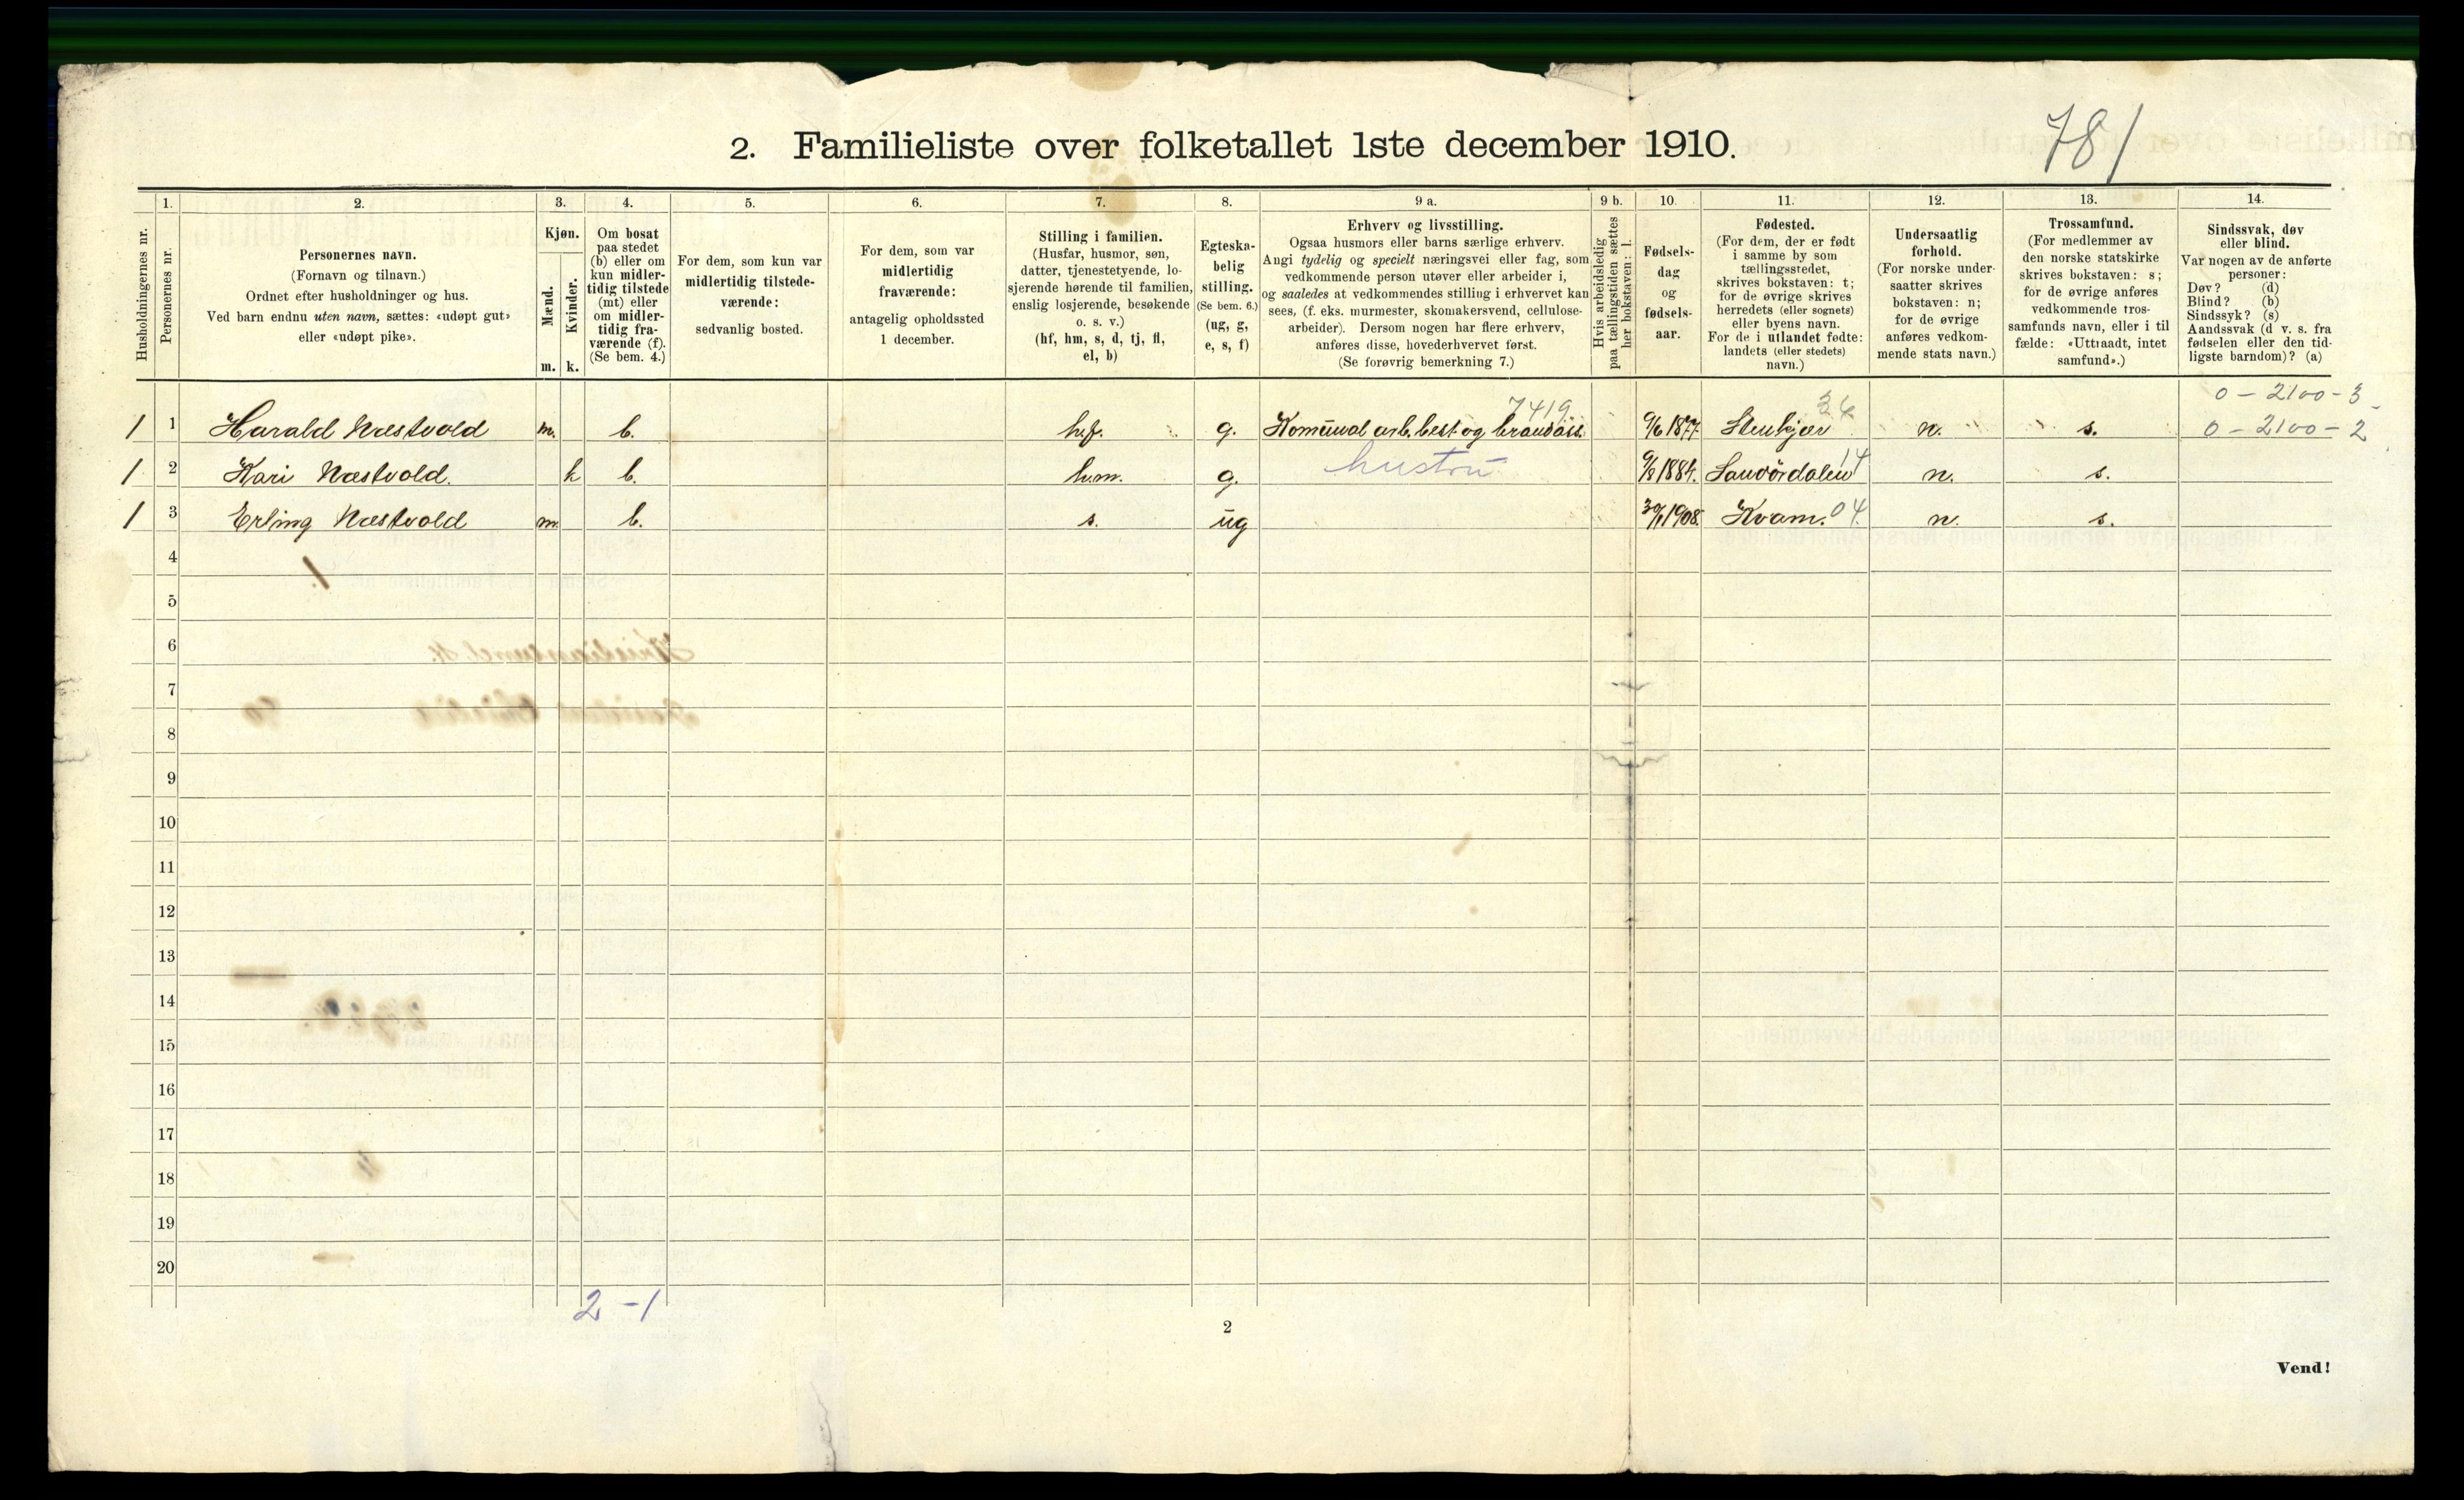 781
2. Familieliste over folketallet 1ste december 1910.
Husholdningernes nr.
1.
Personernes nr.
2.
Personernes navn.
(Fornavn og tilnavn.)
Ordnet efter husholdninger og hus.
Ved barn endnu uten navn, sættes: «udøpt gut»
eller «udøpt pike».
3.
Kjøn.
Mænd.
Kvinder.
m. k.
4.
Om bosat
paa stedet
(b) eller om
kun midler-
tidig tilstede
(mt) eller
om midler-
tidig fra-
værende (f).
(Se bem. 4.)
5.
For dem, som kun var
midlertidig tilstede-
værende:
sedvanlig bosted.
6.
For dem, som var
midlertidig
fraværende:
antagelig opholdssted
1 december.
7.
Stilling i familien.
(Husfar, husmor, søn,
datter, tjenestetyende, lo-
sjerende hørende til familien,
enslig losjerende, besøkende
o. s. v.)
(hf, hm, s, d, tj, fl,
el, b)
8.
Egteska-
belig
stilling.
(Se bem. 6.)
(ug, g,
e, s, f)
9 a.
Erhverv og livsstilling.
Ogsaa husmors eller barns særlige erhverv.
Angi tydelig og specielt næringsvei eller fag, som
vedkommende person utøver eller arbeider i,
og saaledes at vedkommendes stilling i erhvervet kan
sees, (f. eks. murmester, skomakersvend, cellulose-
arbeider). Dersom nogen har flere erhverv,
anføres disse, hovederhvervet først.
(Se forøvrig bemerkning 7.)
9 b.
Hvis arbeidsledig
paa tællingstiden sættes
her bokstaven: l.
10.
Fødsels-
dag
og
fødsels-
aar.
11.
Fødested.
(For dem, der er født
i samme by som
tællingsstedet,
skrives bokstaven: t;
for de øvrige skrives
herredets (eller sognets)
eller byens navn.
For de i utlandet fødte:
landets (eller stedets)
navn.)
12.
Undersaatlig
forhold.
(For norske under-
saatter skrives
bokstaven: n;
for de øvrige
anføres vedkom-
mende stats navn.)
13.
Trossamfund.
(For medlemmer av
den norske statskirke
skrives bokstaven: s;
for de øvrige anføres
vedkommende tros-
samfunds navn, eller i til
fælde: «Uttraadt, intet
samfund».)
14.
Sindssvak, døv
eller blind.
Var nogen av de anførte
personer:
Døv? (d)
Blind? (b)
Sindssyk? (s)
Aandssvak (d v. s. fra
fødselen eller den tid-
ligste barndom)? (a)
7419 36 0 - 2100 - 3
1 1 Harald Næstvold m. b. h.f. g. Komunal arb. best og brandass. 9/6 1877. Stenkjær n. s. 0 - 2100 - 2
1 2 Kari Næstvold. k b. h.m. g. hustru 1884. Sandördalen 14 n. s.
1 3 Erling Næstvold m. b. s. ug 1908. Kvam. 04. n. s.
4
1.
5
6
7
8
9
10
11
12
13
14
15
16
17
18
19
20
2 - 1
2
Vend!